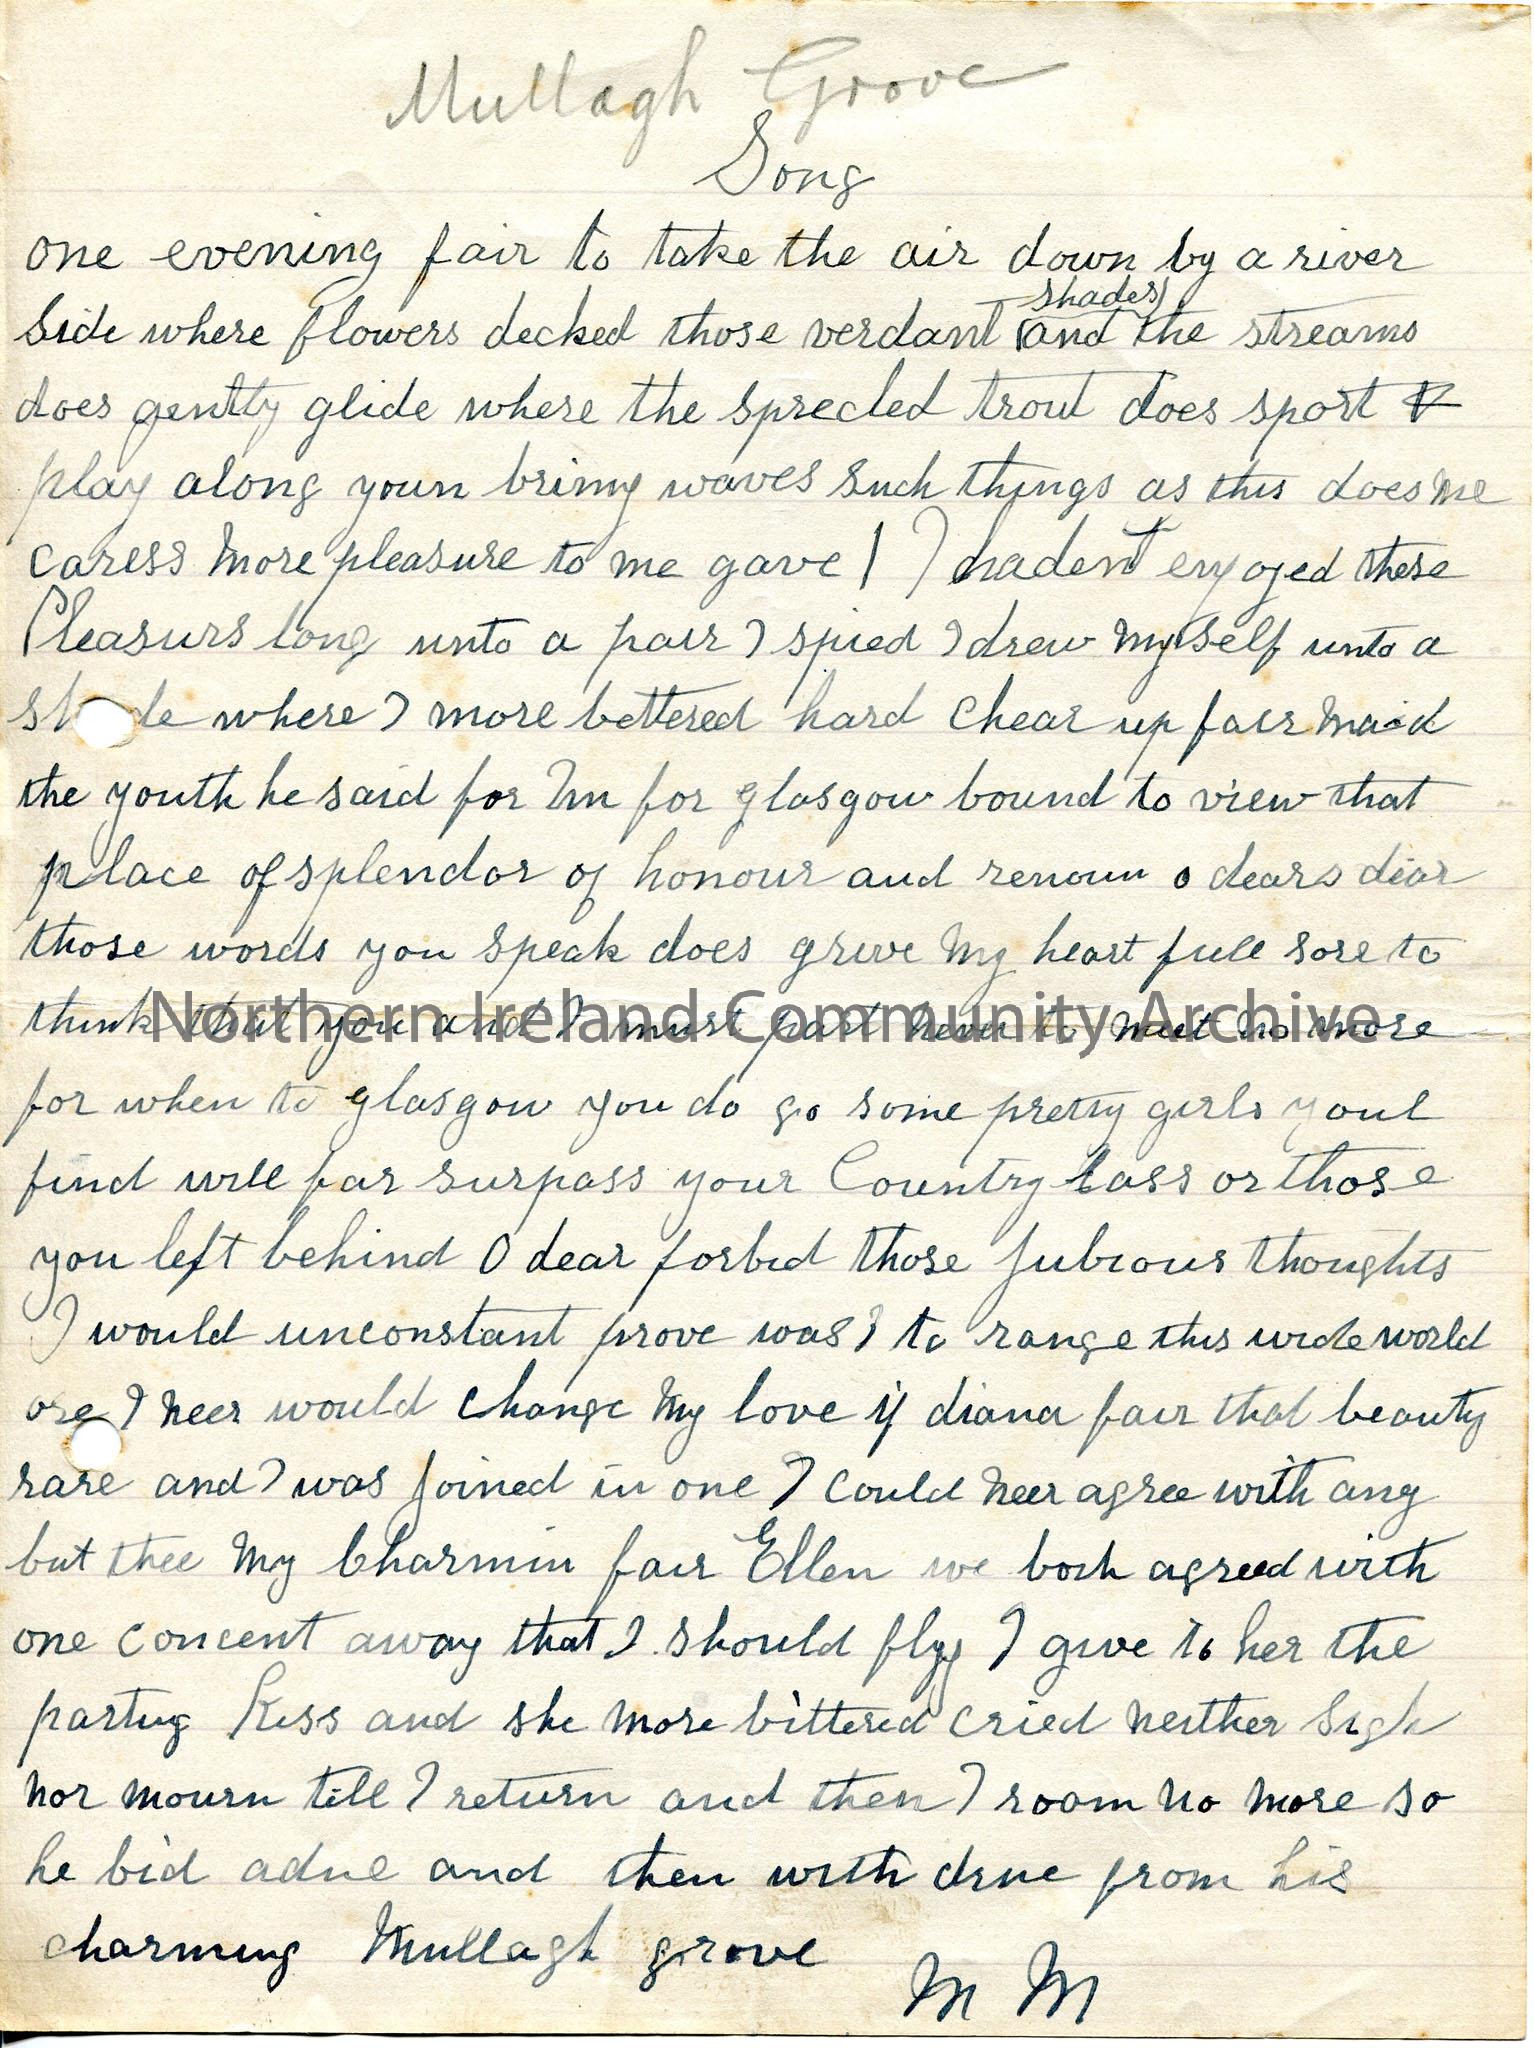 Mullagh Grove
Song
one evening fair to take the air down by a river
shades
Side where flowers decked those verdant and the streams
does gently glide where the sprecled trout does sport &
play along youn brimy waves Such things as this does me
caress more pleasure to me gave I hadent enyoyed these
Pleasurs long unto a pair I spied I drew myself unto a
sh de where I more bettered hard chear up fair maid
the youth he said for Im for glasgow bound to view that
place of splendor of honour and renoun o dears dear
those words you speak does grive my heart full sore to
think that you and I must part never to meet no more
for when to glasgow you do go some pretty girls youl
find will far surpass your Country lass or those
you left behind O dear forbid those jubious thoughts
I would unconstant prove was I to range this wide world
ore I neer would change my love if diana fair that beauty
rare and I was joined in one I could neer agree with any
but thee my Charmin fair Ellen we both agreed with
one concent away that I should fly I give to her the
parting Kiss and she more bittered cried neither sigh
nor mourn till I return and then I roam no more so
he bid adue and then with drue from his
charming Mullagh grove
M M
Northern Ireland Community Archive